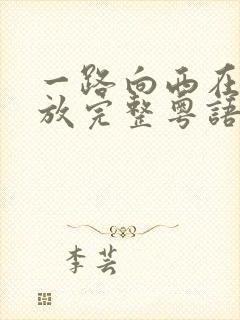 一路向西在
放完整粤語
李芸